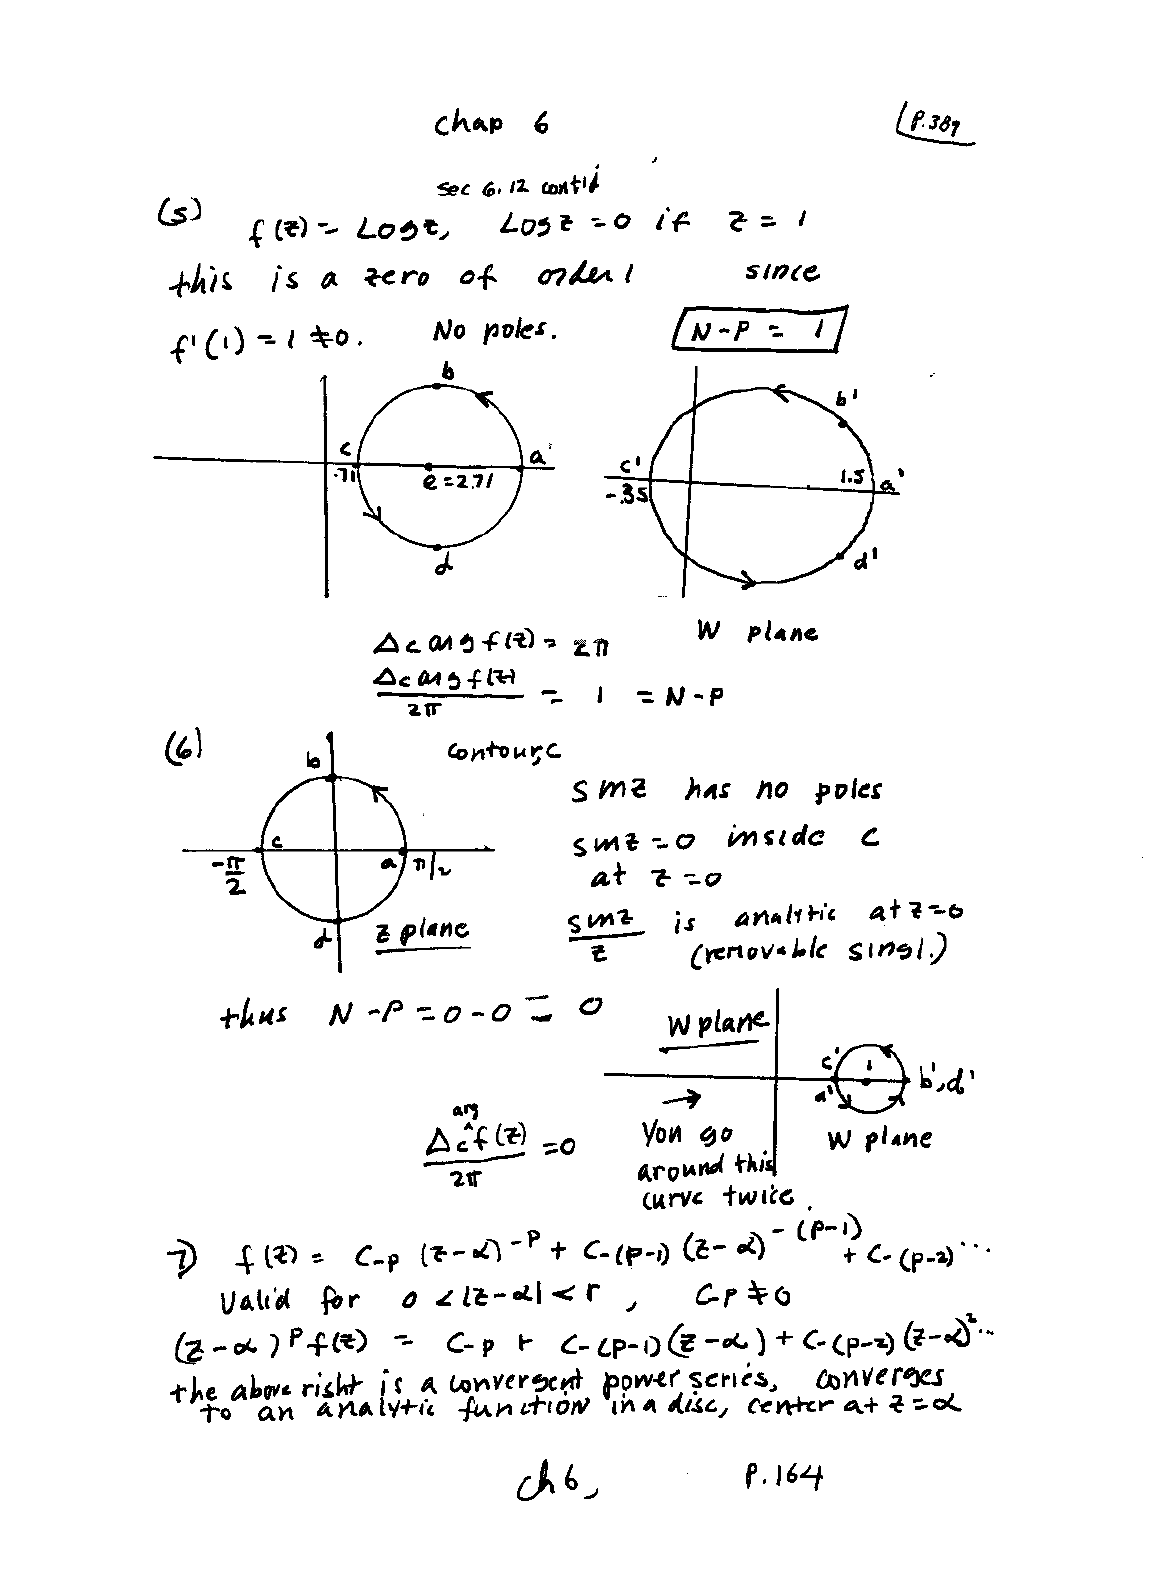 chap 6
P.389
sec 6.12 cont'd
(5) f(z) = Log z, Log z = 0 if z = 1
this is a zero of order 1 since
f'(1) = 1 ≠ 0. No poles. N-P = 1
b
b'
c
a
c'
a'
.71
e=2.71
-.35
1.5
d
d'
W plane
Δc arg f(z) = 2π
Δc arg f(z) / 2π = 1 = N-P
(6) contour, C
b
sin z has no poles
c
a
-π/2
π/2
sin z = 0 inside C
at z = 0
d
z plane
sin z / z is analytic at z=0
(removable singl.)
thus N-P = 0-0 = 0
W plane
c'
1
b',d'
a'
Δc arg f(z) / 2π = 0
→
You go
around this
curve twice.
W plane
7) f(z) = C-p (z-α)^-p + C-(p-1) (z-α)^-(p-1) + C-(p-2) ...
Valid for 0 < |z-α| < r, C-p ≠ 0
(z-α)^p f(z) = C-p + C-(p-1)(z-α) + C-(p-2)(z-α)^2 ...
the above right is a convergent power series, converges
to an analytic function in a disc, center at z=α
ch 6, P.164